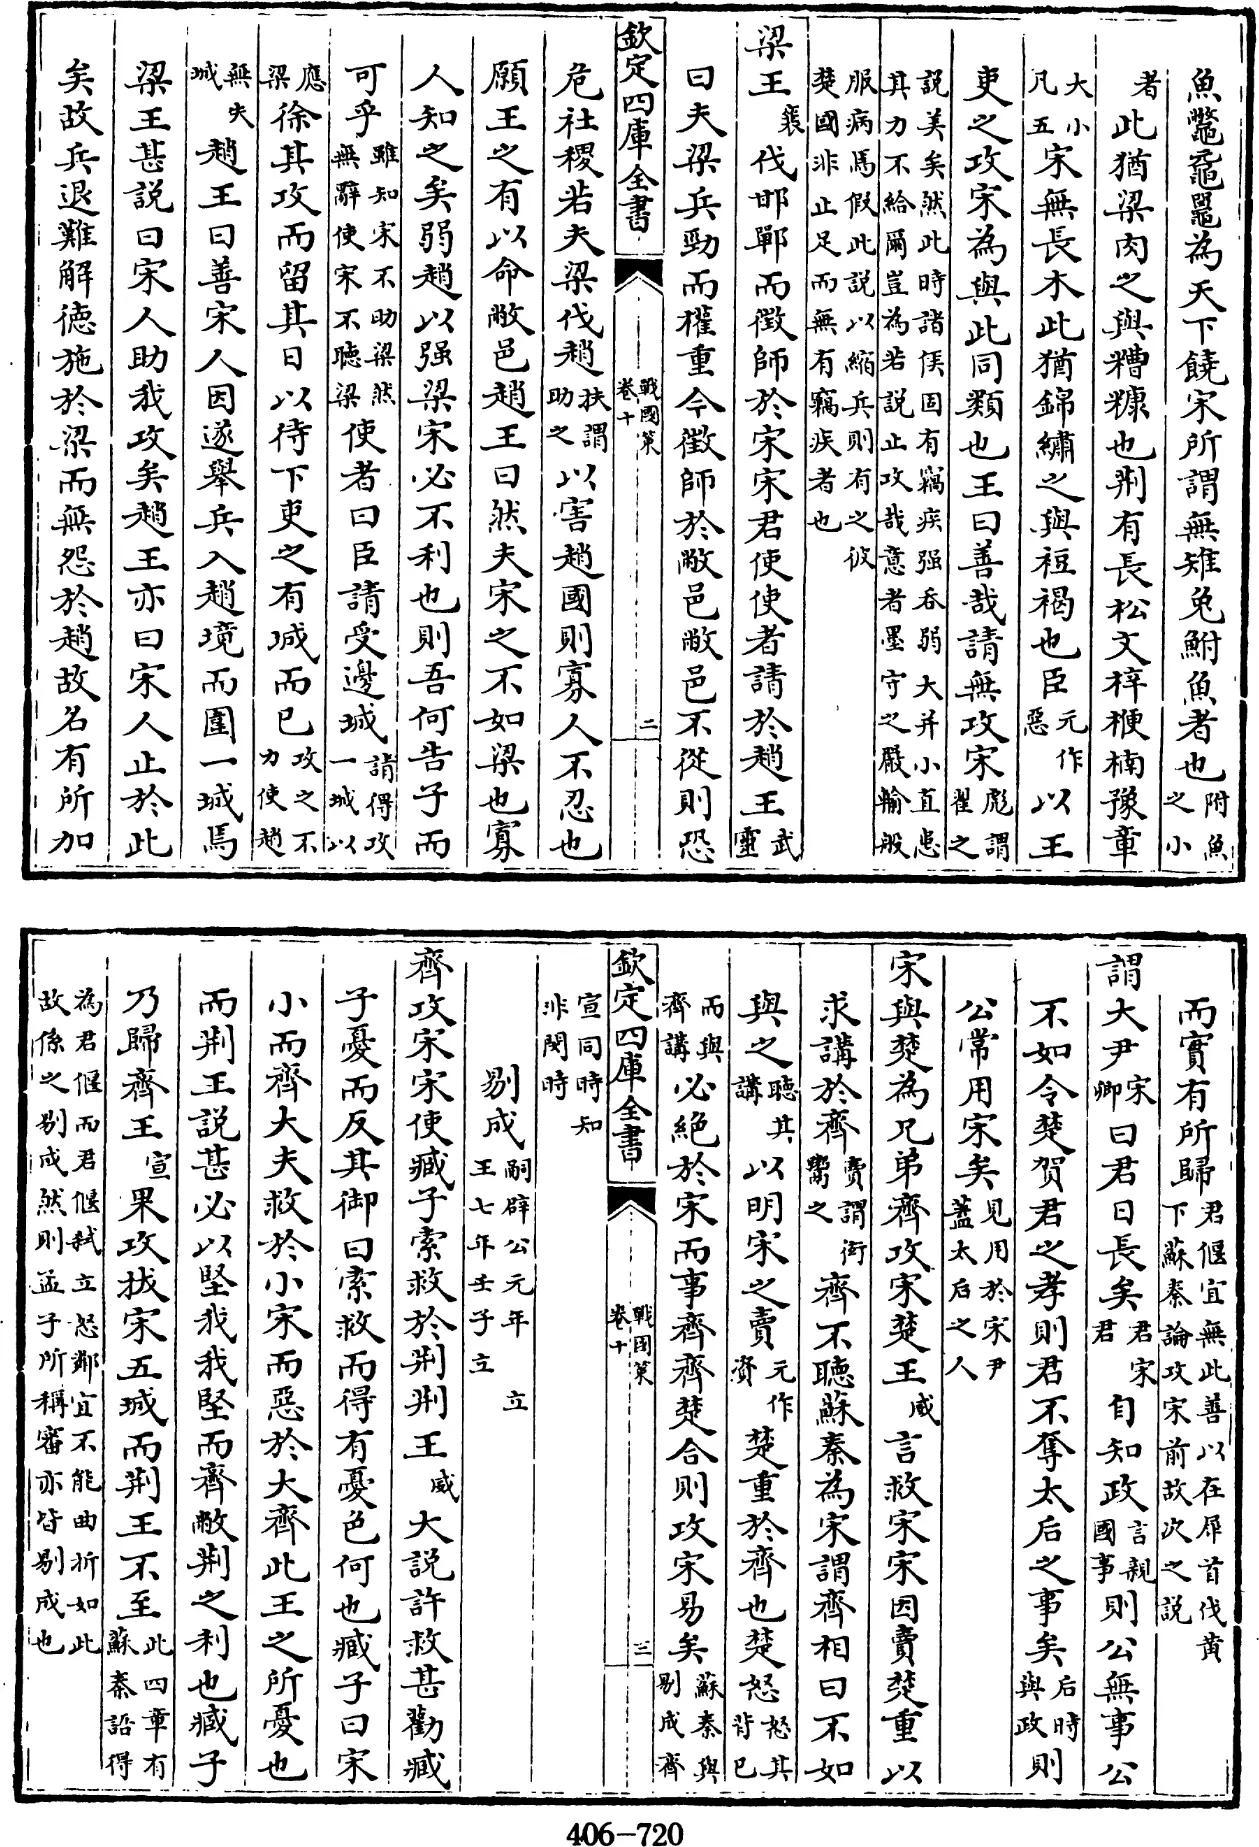 魚鼈黿鼉為天下饒宋所謂無雉兔鮒魚者也附魚之小
者此猶梁肉之與糟糠也荆有長松文梓楩楠豫章
大小凡五宋無長木此猶錦繡之與裋褐也臣元作惡以王
吏之攻宋為與此同類也王曰善哉請無攻宋彪謂翟之
說美矣然此時諸侯固有竊疾强吞弱大并小直患
其力不給爾豈為若説止攻哉意者墨守之嚴輸般
服病焉假此説以縮兵則有之彼
楚國非止足而無有竊疾者也
梁王襄伐邯鄲而徵師於宋宋君使使者請於趙王武靈
曰夫梁兵勁而權重今徵師於敝邑敝邑不從則恐
欽定四庫全書
戰國策
卷十
二
危社稷若夫梁伐趙扶謂助之以害趙國則寡人不忍也
願王之有以命敝邑趙王曰然夫宋之不如梁也寡
人知之矣弱趙以强梁宋必不利也則吾何告子而
可乎雖知宋不助梁然無辭使宋不聽梁使者曰臣請受邊城請得攻一城以
應梁徐其攻而留其日以待下吏之有城而已攻之不力使趙
無失城趙王曰善宋人因遂舉兵入趙境而圍一城焉
梁王甚説曰宋人助我攻矣趙王亦曰宋人止於此
矣故兵退難解德施於梁而無怨於趙故名有所加
而實有所歸君偃宜無此善以在犀首伐黄
下蘇秦論攻宋前故次之説
謂大尹宋卿曰君日長矣君宋君自知政言親國事則公無事公
不如令楚賀君之孝則君不奪太后之事矣后時與政則
公常用宋矣見用於宋尹蓋太后之人
宋與楚為兄弟齊攻宋楚王威言救宋宋因賣楚重以
求講於齊賣謂衒鬻之齊不聽蘇秦為宋謂齊相曰不如
與之聽其講以明宋之賣元作資楚重於齊也楚怒怒其背已
而與齊講必絶於宋而事齊齊楚合則攻宋易矣蘇秦與剔成齊
欽定四庫全書
戰國策
卷十
三
宣同時知
非閔時
剔成嗣辟公元年立
王七年壬子立
齊攻宋宋使臧子索救於荆荆王威大説許救甚勸臧
子憂而反其御曰索救而得有憂色何也臧子曰宋
小而齊大夫救於小宋而惡於大齊此王之所憂也
而荆王説甚必以堅我我堅而齊敝荆之利也臧子
乃歸齊王宣果攻拔宋五城而荆王不至此四章有蘇秦詔得
為君偃而君偃弒立怒鄰宜不能曲折如此
故係之剔成然則孟子所稱審亦皆剔成也
406-720